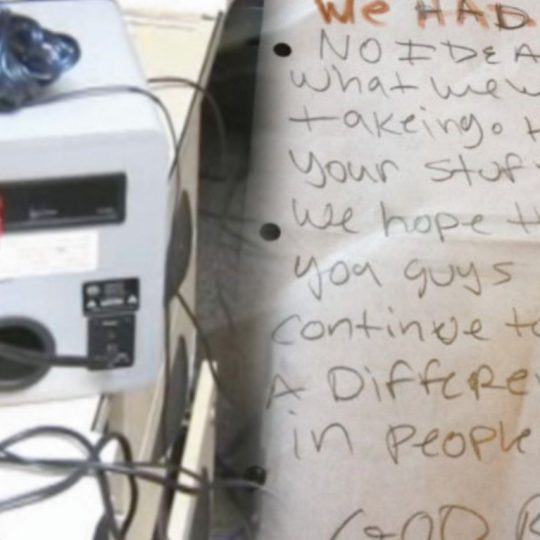 We HAD
NO IDEA
What we w
takeing. H
your stuf
We hope th
you guys
continue to
A Differe
in people
GOD B